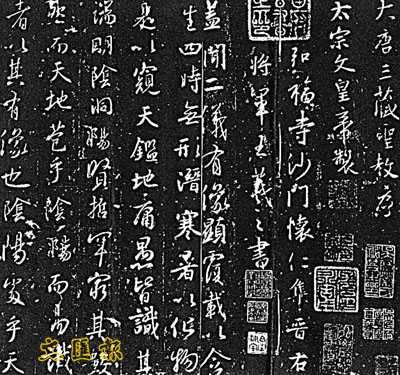 大唐三藏聖教序
太宗文皇帝製
弘福寺沙門懷仁集晉右
將軍王羲之書
蓋聞二儀有像顯覆載以含
生四時無形潛寒暑以化物
是以窺天鑑地庸愚皆識其
端明陰洞陽賢哲罕窮其數
然而天地苞乎陰陽而易識
者以其有像也陰陽處乎天
文匯報